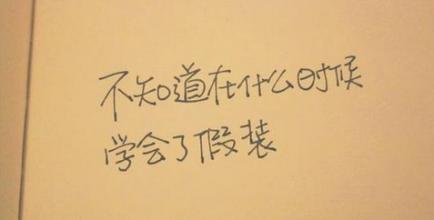 不知道在什么时候
学会了假装